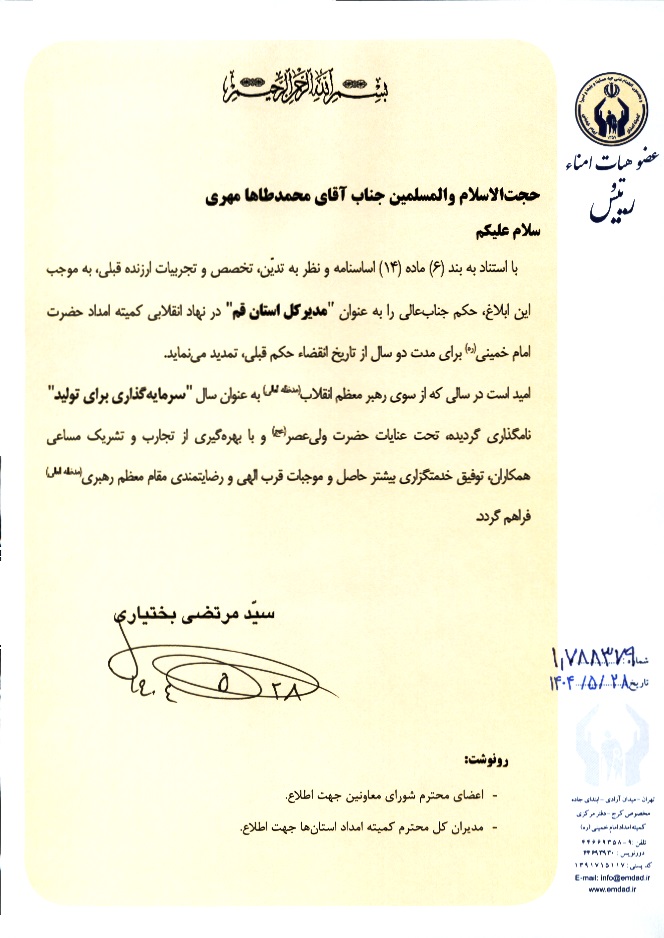 بسم الله الرحمن الرحیم
عضو هیات امناء
و
رئیس
حجت‌الاسلام والمسلمین جناب آقای محمدطاها مهری
سلام علیکم
با استناد به بند (۶) ماده (۱۴) اساسنامه و نظر به تدیّن، تخصص و تجربیات ارزنده قبلی، به موجب
این ابلاغ، حکم جناب‌عالی را به عنوان "مدیرکل استان قم" در نهاد انقلابی کمیته امداد حضرت
امام خمینی(ره) برای مدت دو سال از تاریخ انقضاء حکم قبلی، تمدید می‌نماید.
امید است در سالی که از سوی رهبر معظم انقلاب(مدظله العالی) به عنوان سال "سرمایه‌گذاری برای تولید"
نامگذاری گردیده، تحت عنایات حضرت ولی‌عصر(عج) و با بهره‌گیری از تجارب و تشریک مساعی
همکاران، توفیق خدمتگزاری بیشتر حاصل و موجبات قرب الهی و رضایتمندی مقام معظم رهبری(مدظله العالی)
فراهم گردد.
سیّد مرتضی بختیاری
۱۴۰۴ ۵ ۲۸
شماره: ۱,۷۸۸۳۷۹
تاریخ: ۱۴۰۴/۵/۲۸
رونوشت:
- اعضای محترم شورای معاونین جهت اطلاع.
- مدیران کل محترم کمیته امداد استان‌ها جهت اطلاع.
تهران - میدان آزادی - ابتدای جاده
مخصوص کرج - دفتر مرکزی
کمیته امداد امام خمینی (ره)
تلفن: ۹-۴۴۶۶۹۳۵۸
دورنویس: ۴۴۶۹۳۹۳۰
کد پستی: ۱۳۹۱۷۱۵۱۱۷
E-mail: info@emdad.ir
www.emdad.ir